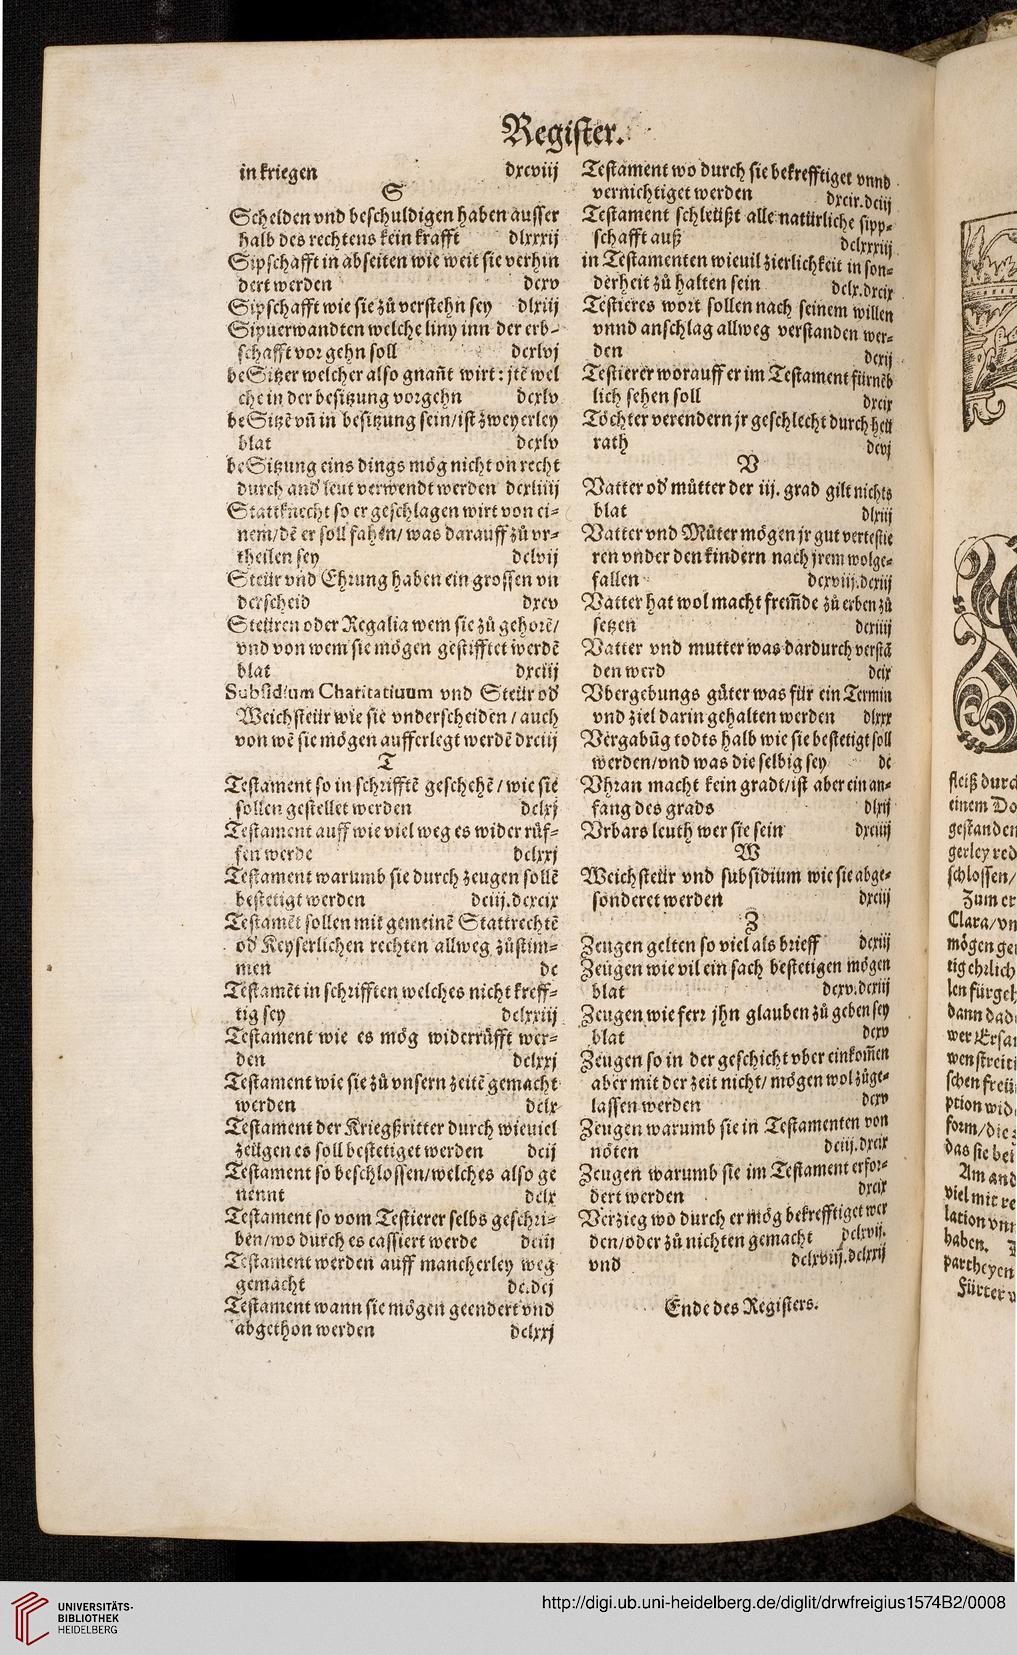 Register.
in kriegen dxcviij
S
Schelden vnd beschuldigen haben ausser
halb des rechtens kein krafft dlxxxij
Sipschafft in abseiten wie weit sie verhin
dert werden dcxv
Sipschafft wie sie zů verstehn sey dlxiij
Sipuerwandten welche liny inn der erb-
schafft vor gehn soll dcxlvj
beSitzer welcher also gnañt wirt : jtē wel
che in der besitzung vorgehn dcxlv
beSitzē vñ in besitzung sein/ist zweyerley
blat dcxlv
beSitzung eins dings mög nicht on recht
durch and' leut verwendt werden dcxliiij
Stattknecht so er geschlagen wirt von ei-
nem/dē er soll fahen/ was darauff zů vr-
theilen sey dclvij
Steür vnd Ehrung haben ein grossen vn
derscheid dxcv
Steüren oder Regalia wem sie zů gehorē/
vnd von wem sie mögen gestifftet werdē
blat dxciij
Subsidium Charitatiuum vnd Steür od'
Weichsteür wie sie vnderscheiden / auch
von wē sie mögen aufferlegt werdē dxciij
T
Testament so in schrifftē geschehē / wie sie
sollen gestellet werden dclxj
Testament auff wie viel weg es wider rüf-
fen werde dclxxj
Testament warumb sie durch zeugen sollē
bestetigt werden dciij.dcxcix
Testamēt sollen mit gemeinē Stattrechtē
od' Keyserlichen rechten allweg zůstim-
men dc
Testamēt in schrifften welches nicht kreff-
tig sey dclxxiij
Testament wie es mög widerrüfft wer-
den dclxxj
Testament wie sie zů vnsern zeitē gemacht
werden dclx
Testament der Kriegßritter durch wieuiel
zeügen es soll bestetiget werden dcij
Testament so beschlossen/welches also ge
nennt dclx
Testament so vom Testierer selbs geschri-
ben/wo durch es cassiert werde dciii
Testament werden auff mancherley weg
gemacht dc.dcj
Testament wann sie mögen geendert vnd
abgethon werden dclxxj
Testament wo durch sie bekrefftiget vnnd
vernichtiget werden dxcix.dciij
Testament schleüßt alle natürliche sipp-
schafft auß dclxxxiij
in Testamenten wieuil zierlichkeit in son-
derheit zů halten sein dclx.dxcix
Testieres wort sollen nach seinem willen
vnnd anschlag allweg verstanden wer-
den dcxij
Testierer worauff er im Testament fürnēb
lich sehen soll dxcix
Töchter verendern jr geschlecht durch heü
rath dcvj
V
Vatter od' můtter der iij. grad gilt nichts
blat dlxiij
Vatter vnd Můter mögen jr gut vertestie
ren vnder den kindern nach jrem wolge-
fallen dcxviij.dcxiij
Vatter hat wol macht frem̄de zů erben zů
setzen dcxiiij
Vatter vnd mutter was dardurch verstā
den werd dcix
Vbergebungs güter was für ein Termin
vnd ziel darin gehalten werden dlxxx
Vergabūg todts halb wie sie bestetigt soll
werden/vnd was die selbig sey dc
Vhran macht kein gradt/ist aber ein an-
fang des grads dlxij
Vrbars leuth wer sie sein dxciiij
W
Weichsteür vnd subsidium wie sie abge-
sonderet werden dxciij
Z
Zeugen gelten so viel als brieff dcxiij
Zeügen wie vil ein sach bestetigen mögen
blat dcxv.dcxiij
Zeugen wie ferr jhn glauben zů geben sey
blat dcxv
Zeugen so in der geschicht vber einkom̄en
aber mit der zeit nicht/ mögen wol zůge-
lassen werden dcxv
Zeugen warumb sie in Testamenten von
nöten dciij.dxcix
Zeugen warumb sie im Testament erfor-
dert werden dxcix
Verzieg wo durch er mög bekrefftiget wer
den/oder zů nichten gemacht dclxvij.
vnd dclxviij.dclxxij
Ende des Registers.
fleiß durch
einem Do
gestanden
gerley red
schlossen/
Zum er
Clara/vn
mögen ge
tig ehrlich
len fürgeh
dann dad
wer Ersa
wen streiti
schen freü
ption wid
form/die
das sie bei
Am and
viel mit re
lation vnn
haben.
partheyen
Fürter v
UNIVERSITÄTS-
BIBLIOTHEK
HEIDELBERG
http://digi.ub.uni-heidelberg.de/diglit/drwfreigius1574B2/0008